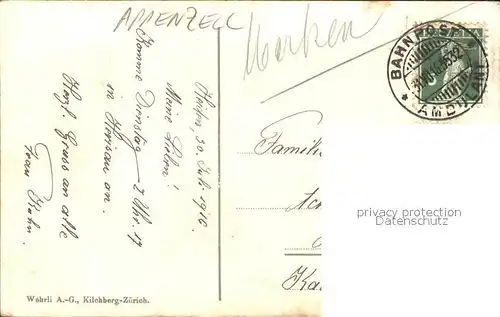 APPENZELL
Merken
BAHNPOST
AMBULANT
30. Juli 1916
Meine Lieben!
Komme Dienstag 7 Uhr 17
in Herisau an.
Herzl. Gruss an alle
Frau
Famili
Ka
privacy protection
Datenschutz
Wehrli A.-G., Kilchberg-Zürich.